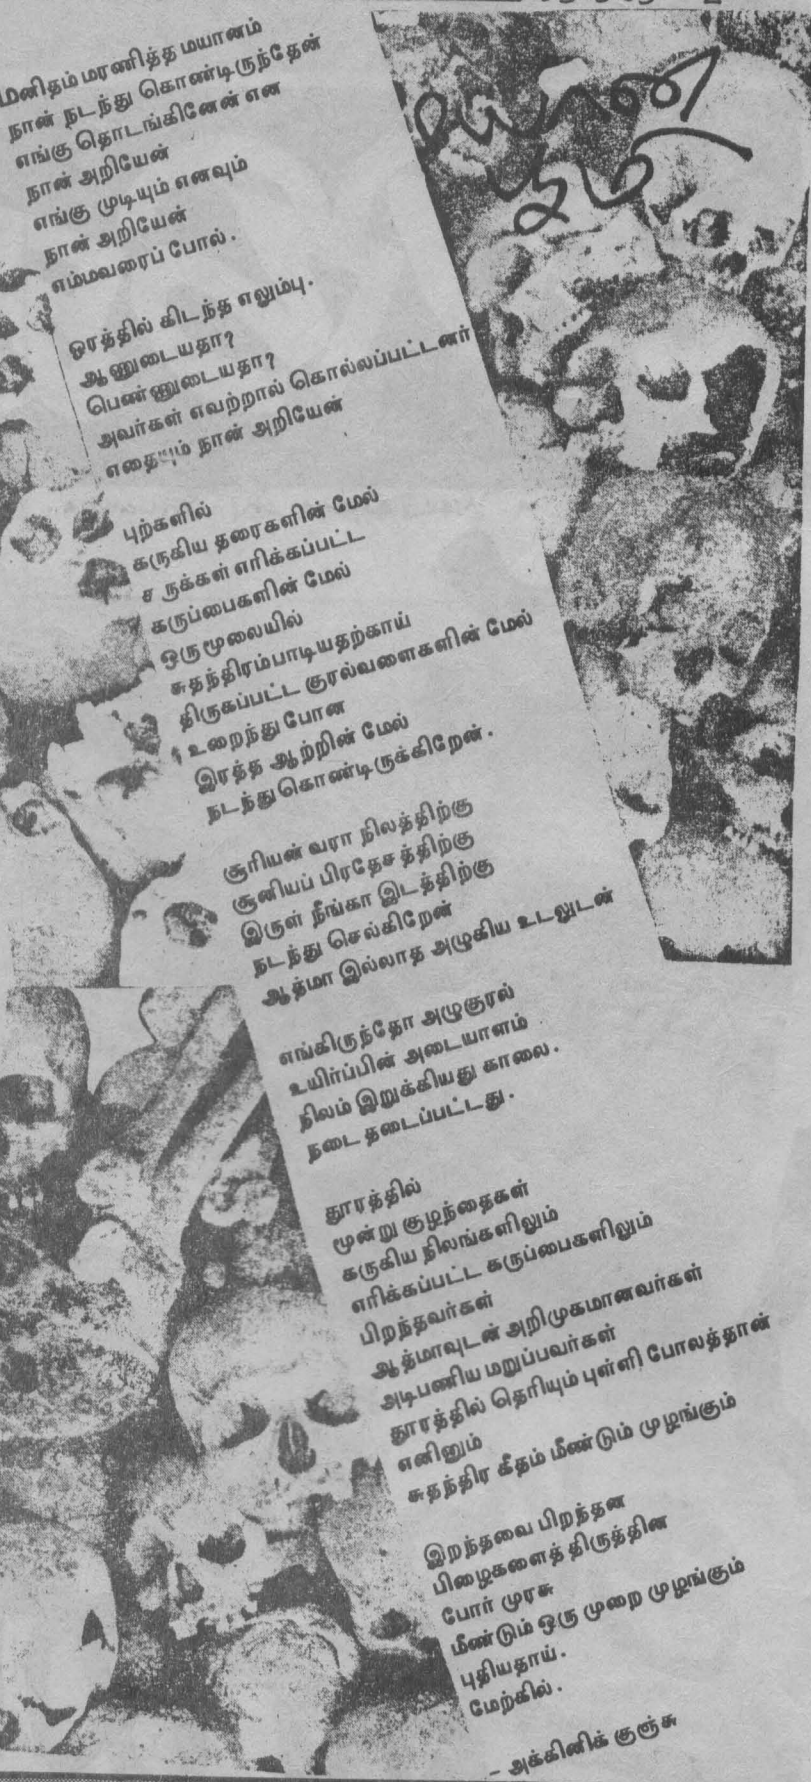 மயான
பூமி
மனிதம் மரணித்த மயானம்
நான் நடந்து கொண்டிருந்தேன்
எங்கு தொடங்கினேன் என
நான் அறியேன்
எங்கு முடியும் எனவும்
நான் அறியேன்
எம்மவரைப் போல்.
ஓரத்தில் கிடந்த எலும்பு.
ஆணுடையதா?
பெண்ணுடையதா?
அவர்கள் எவற்றால் கொல்லப்பட்டனர்
எதையும் நான் அறியேன்
புற்களில்
கருகிய தரைகளின் மேல்
சருக்கள் எரிக்கப்பட்ட
கருப்பைகளின் மேல்
ஒருமூலையில்
சுதந்திரம்பாடியதற்காய்
திருகப்பட்ட குரல்வளைகளின் மேல்
உறைந்து போன
இரத்த ஆற்றின் மேல்
நடந்துகொண்டிருக்கிறேன்.
சூரியன் வரா நிலத்திற்கு
சூனியப் பிரதேசத்திற்கு
இருள் நீங்கா இடத்திற்கு
நடந்து செல்கிறேன்
ஆத்மா இல்லாத அழுகிய உடலுடன்
எங்கிருந்தோ அழுகுரல்
உயிர்ப்பின் அடையாளம்
நிலம் இறுக்கியது காலை.
நடை தடைப்பட்டது.
தூரத்தில்
மூன்று குழந்தைகள்
கருகிய நிலங்களிலும்
எரிக்கப்பட்ட கருப்பைகளிலும்
பிறந்தவர்கள்
ஆத்மாவுடன் அறிமுகமானவர்கள்
அடிபணிய மறுப்பவர்கள்
தூரத்தில் தெரியும் புள்ளி போலத்தான்
எனினும்
சுதந்திர கீதம் மீண்டும் முழங்கும்
இறந்தவை பிறந்தன
பிழைகளைத் திருத்தின
போர் முரசு
மீண்டும் ஒரு முறை முழங்கும்
புதியதாய்.
மேற்கில்.
- அக்கினிக் குஞ்சு